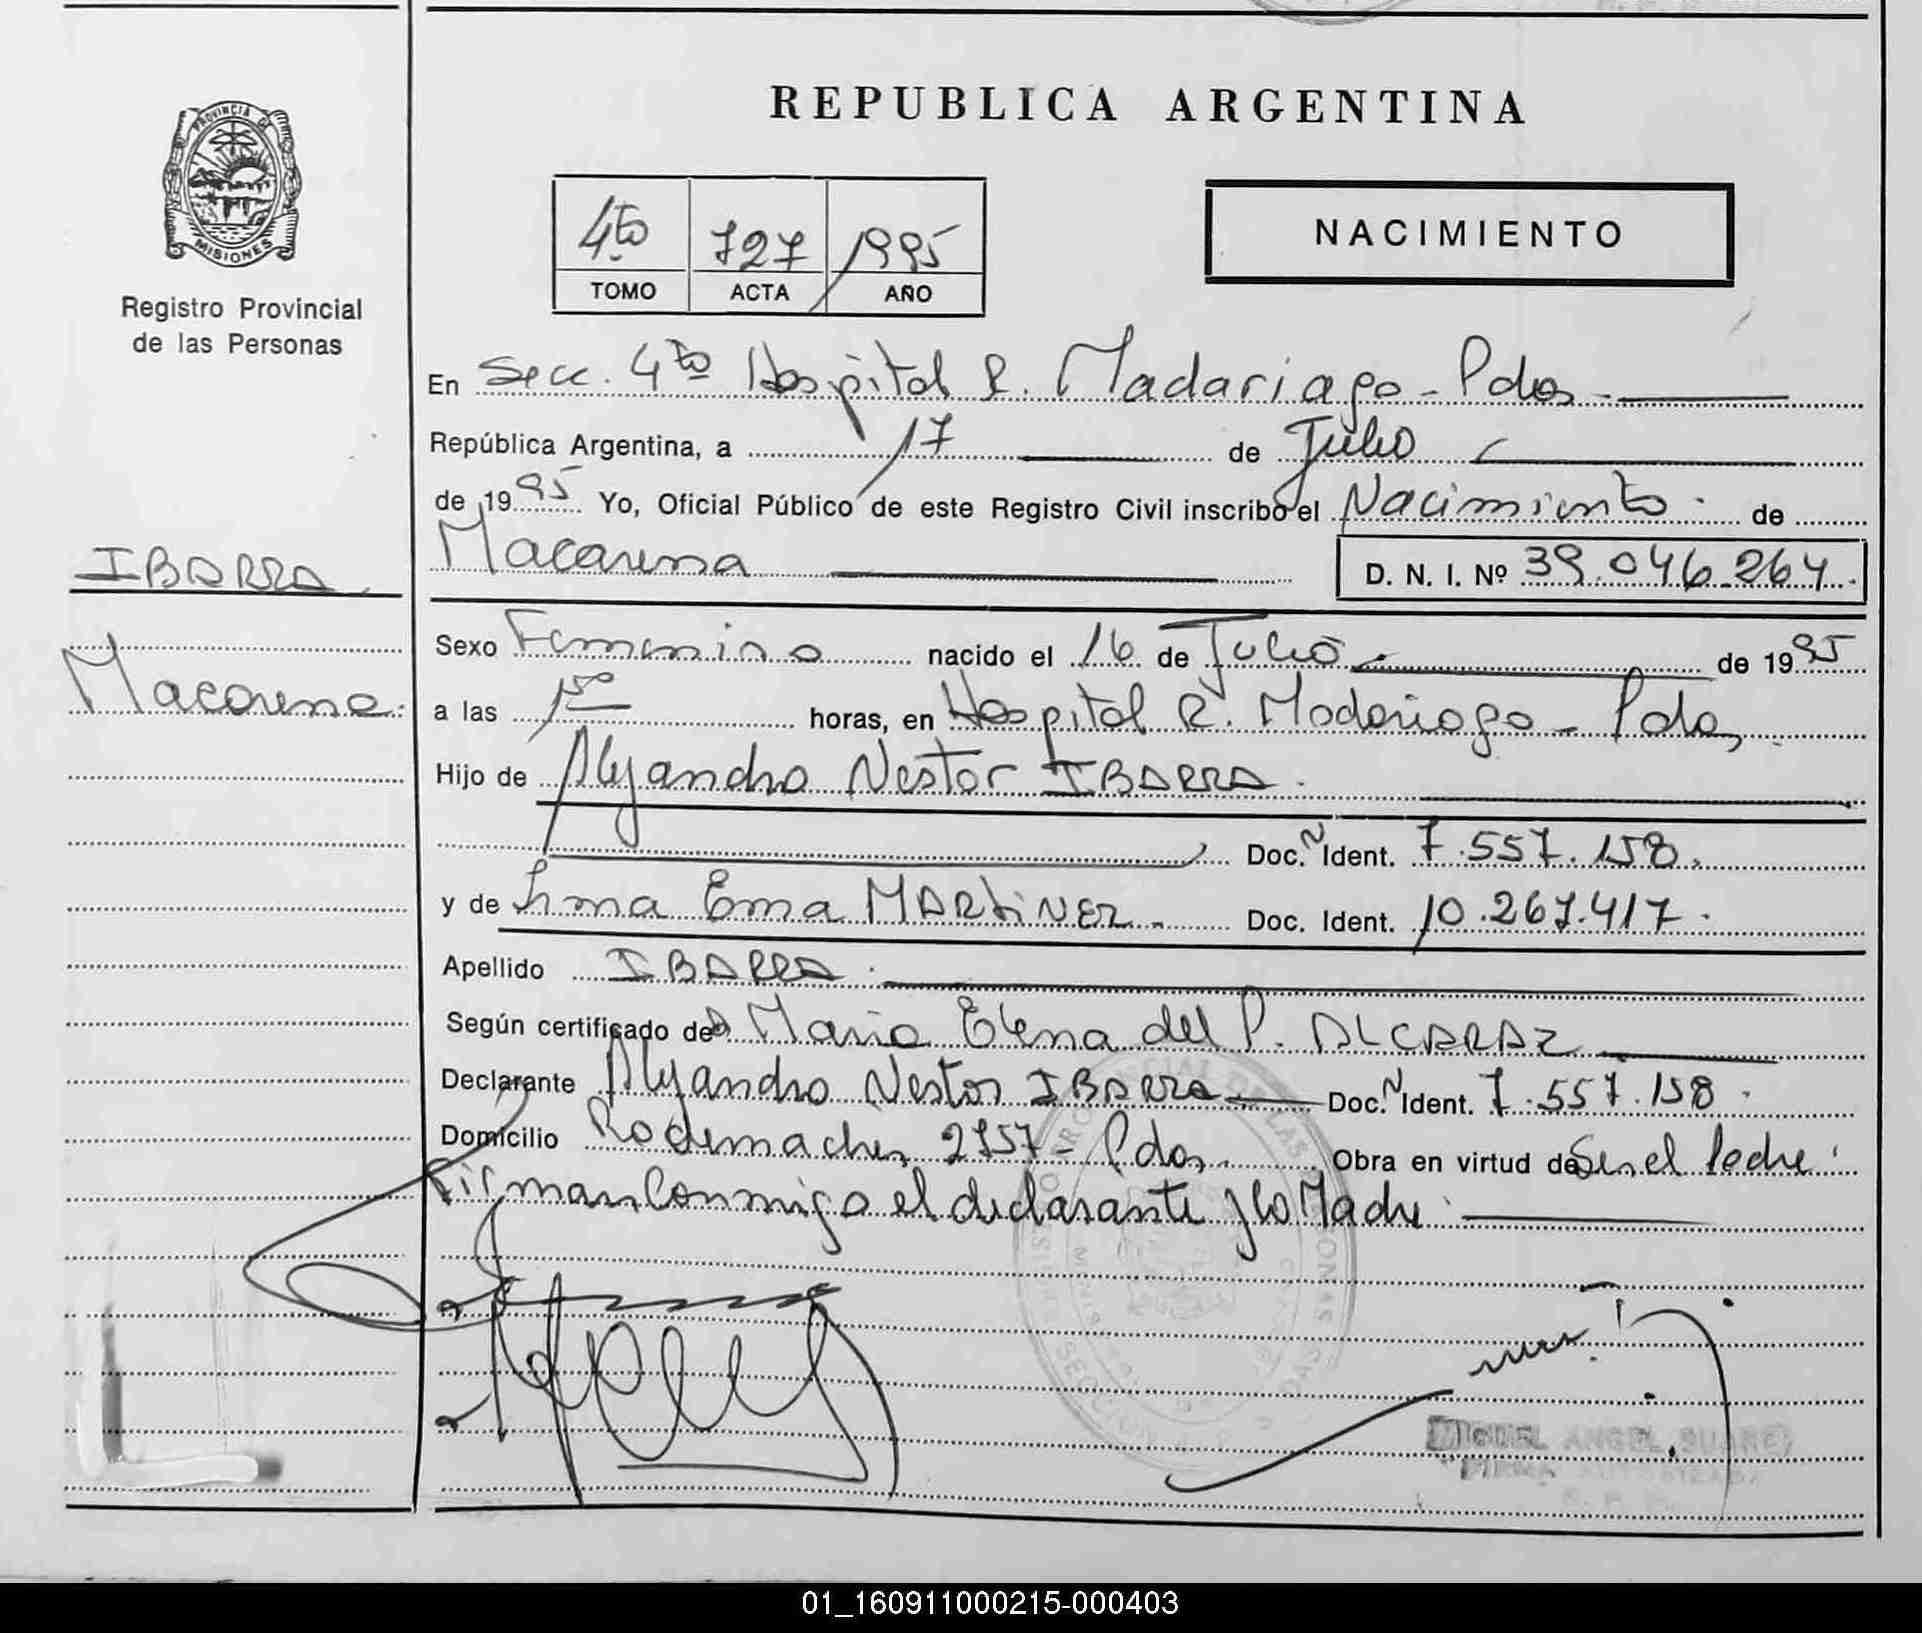 REPUBLICA ARGENTINA
PROVINCIA DE
MISIONES
Registro Provincial
de las Personas
4to 727 1995
TOMO ACTA AÑO
NACIMIENTO
En Secc. 4ta Hospital R. Madariaga - Pdas
República Argentina, a 17 de Julio
de 1995 Yo, Oficial Público de este Registro Civil inscribo el Nacimiento de
Macarena D. N. I. Nº 39.046.264.
IBARRA
Macarena
Sexo Femenino nacido el 16 de Julio de 1995
a las 15º horas, en Hospital R. Madariaga - Pdas
Hijo de Alejandro Nestor IBARRA
Doc. N Ident. 7.557.158.
y de Irma Ema MARtiNEZ. Doc. Ident. 10.267.417.
Apellido IBARRA
Según certificado de María Elena del P. ALCARAZ
Declarante Alejandro Nestor IBARRA Doc. N Ident. 7.557.158.
Domicilio Rademacher 2757 - Pdas. Obra en virtud de Ser el Padre.
Firman Conmigo el declarante y la Madre.
MIGUEL ANGEL SUAREZ
FIRMA AUTORIZADA
01_160911000215-000403